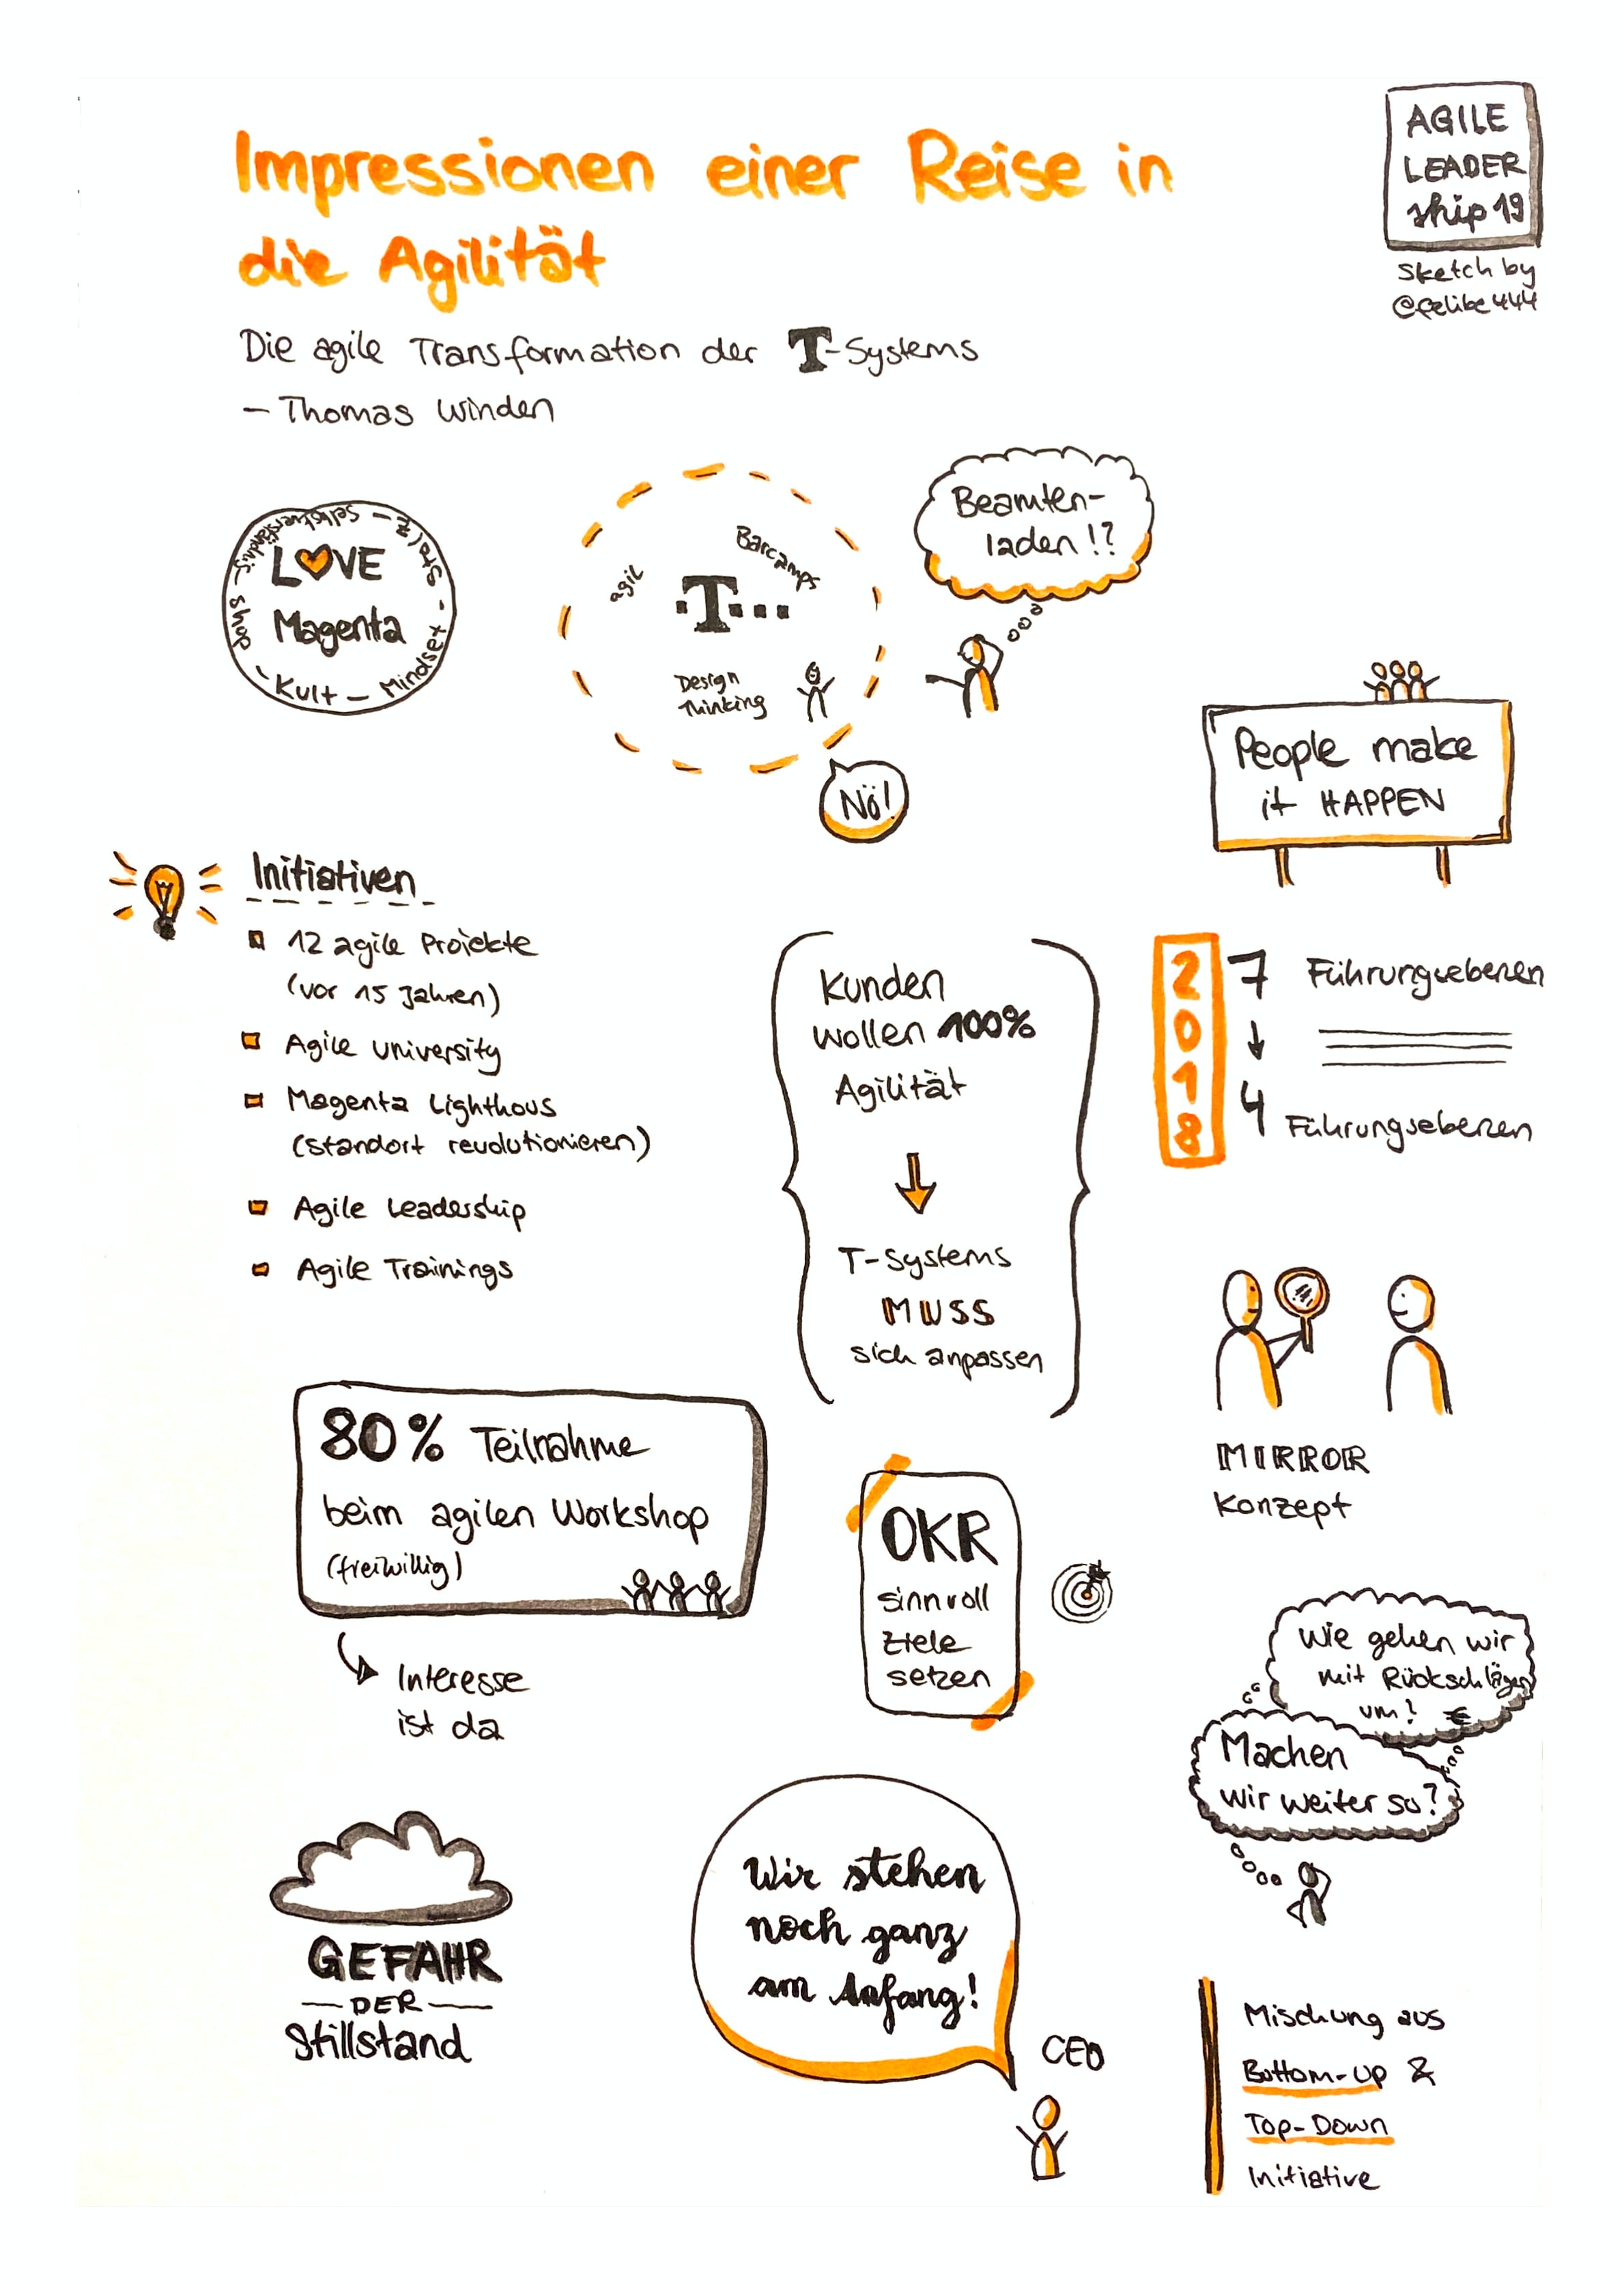 Impressionen einer Reise in
die Agilität
Die agile Transformation der T-Systems
– Thomas Winden
AGILE
LEADER
ship 19
Sketch by
@felibe444
LOVE
Magenta
Selbstverständnis – Stolz – Mindset – Kult – Shop
agil
Barcamps
·T···
Design
Thinking
Nö!
Beamten-
laden!?
People make
it HAPPEN
Initiativen
12 agile Projekte
(vor 15 Jahren)
Agile University
Magenta Lighthous
(Standort revolutionieren)
Agile Leadership
Agile Trainings
Kunden
wollen 100%
Agilität
T-Systems
MUSS
sich anpassen
2018
7 Führungsebenen
4 Führungsebenen
MIRROR
Konzept
80% Teilnahme
beim agilen Workshop
(freiwillig)
Interesse
ist da
OKR
sinnvoll
Ziele
setzen
Wie gehen wir
mit Rückschlägen
um? €
Machen
wir weiter so?
GEFAHR
– DER –
Stillstand
Wir stehen
noch ganz
am Anfang!
CEO
Mischung aus
Bottom-up &
Top-Down
Initiative